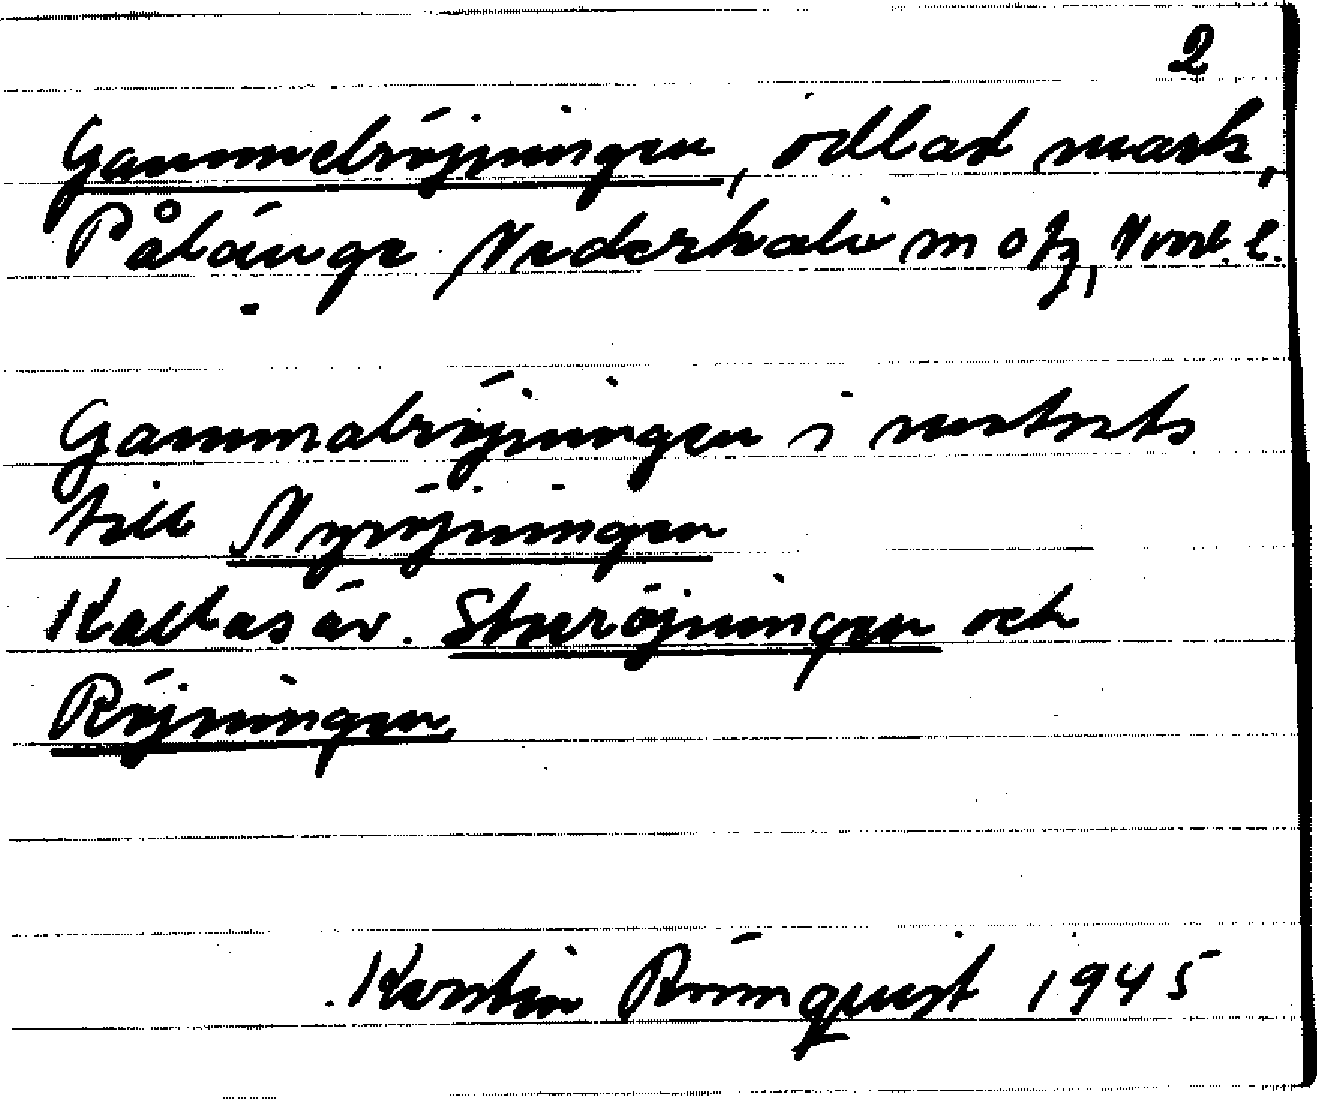 2
Gammelröjningen, odlad mark,
Pålänge Nederkalix sn ofz, Norrb. l.
Gammalröjningen i motsats
till Nyröjningen
Kallas äv. Storröjningen och
Röjningen.
Kerstin Rönnquist 1945